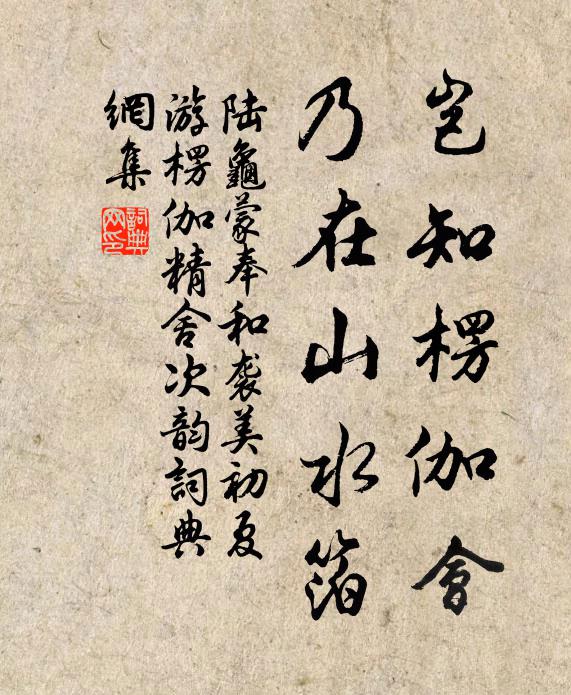 豈知楞伽會
乃在山水箔
陆龜蒙奉和袭美初夏
游楞伽精舍次韵詞典
網集
詞典網印